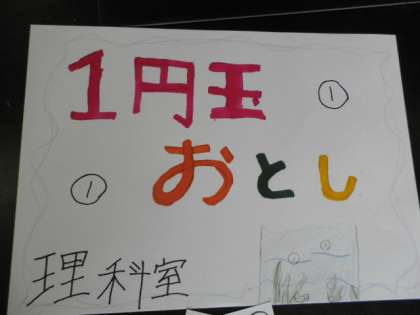 1円玉
①
おとし
①
理科室
① ①